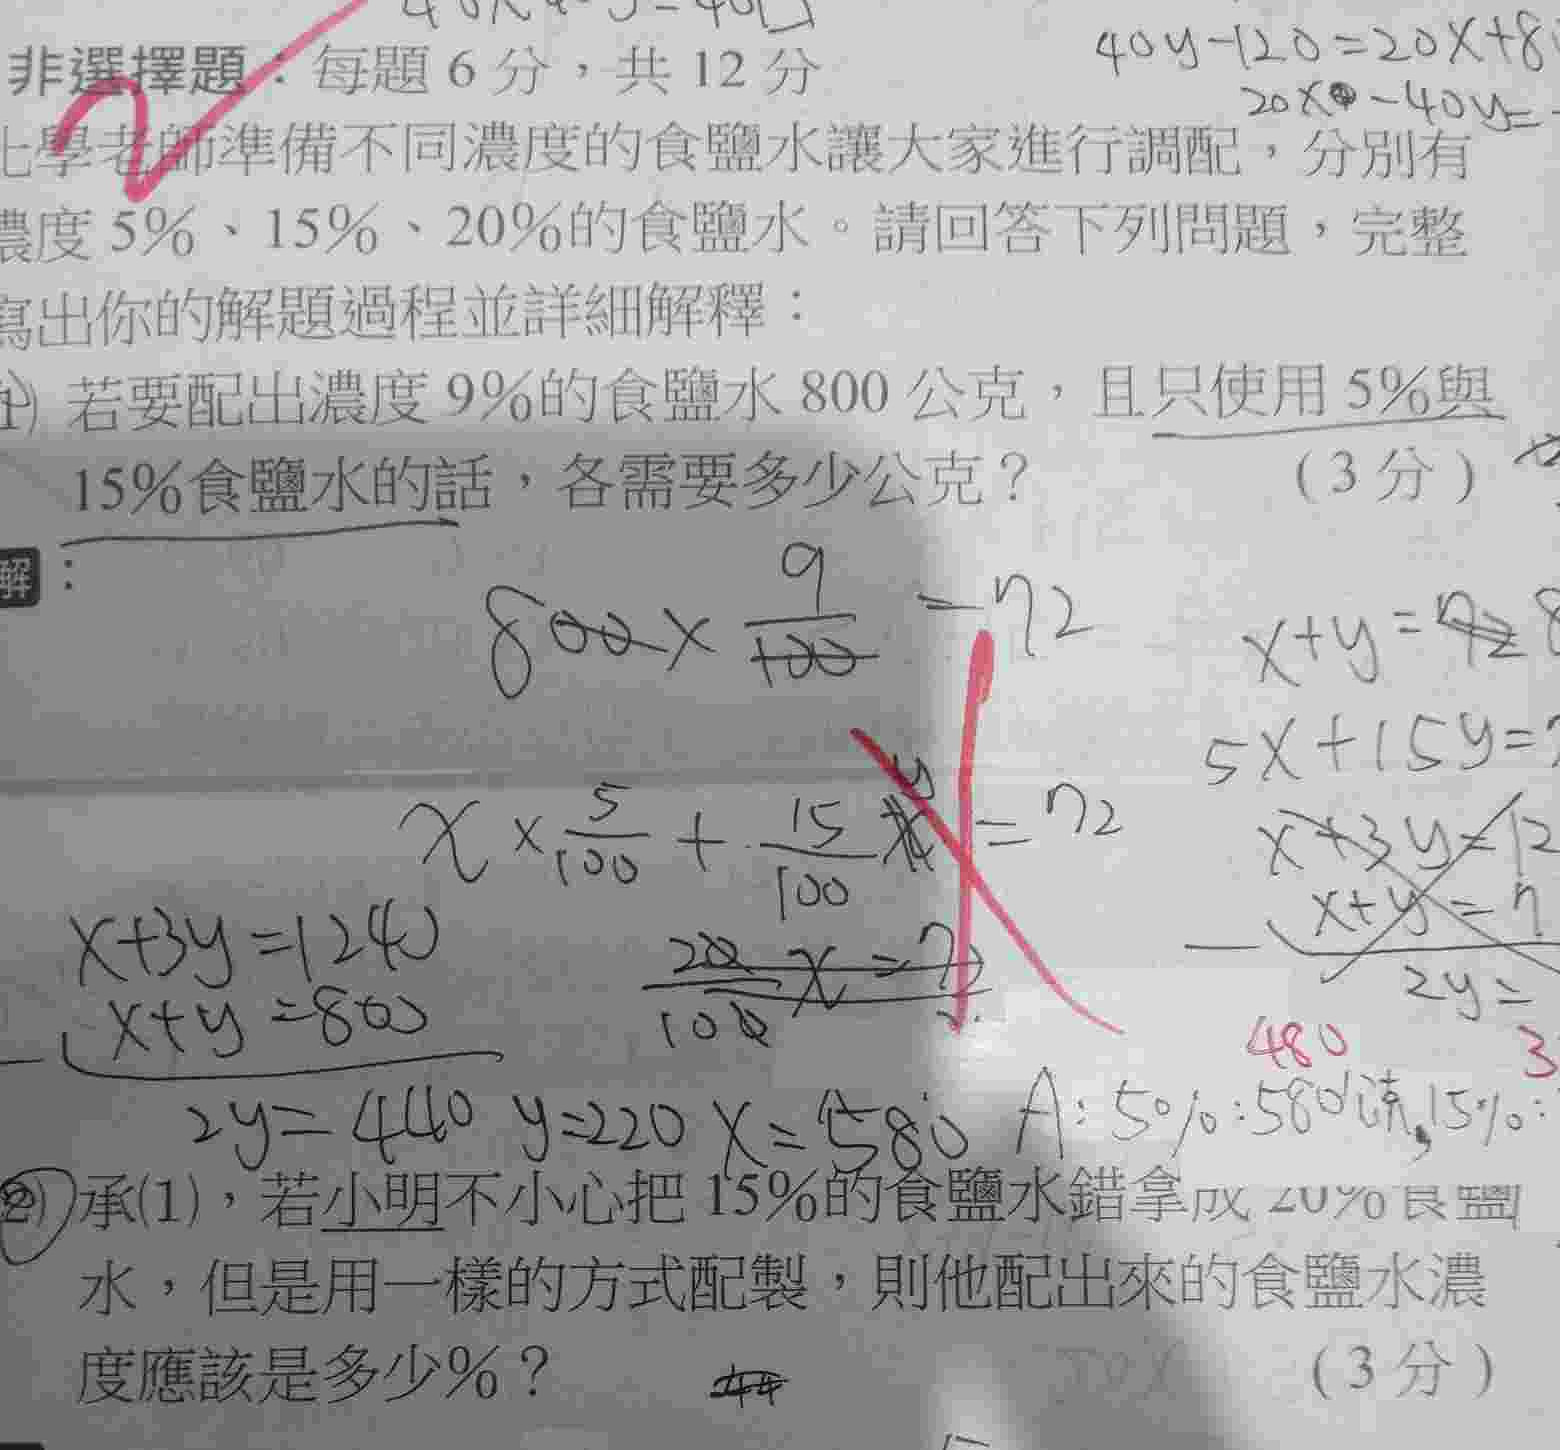 40y-120=20x+8
非選擇題：每題 6 分，共 12 分
20x -40y=-
化學老師準備不同濃度的食鹽水讓大家進行調配，分別有
濃度 5%、15%、20%的食鹽水。請回答下列問題，完整
寫出你的解題過程並詳細解釋：
(1) 若要配出濃度 9%的食鹽水 800 公克，且只使用 5%與
15%食鹽水的話，各需要多少公克？ (3 分)
解：
800 × 9/100 = 72
x+y= 8
5x+15y=7
x × 5/100 + 15/100 y = 72
x+3y=12
x+y=7
2y=
x+3y=1240
x+y=800
20/100 x = 72
480 3
2y=440 y=220 x=580 A:5%:580克,15%:
(2) 承(1)，若小明不小心把 15%的食鹽水錯拿成 20%食鹽
水，但是用一樣的方式配製，則他配出來的食鹽水濃
度應該是多少%？ (3 分)